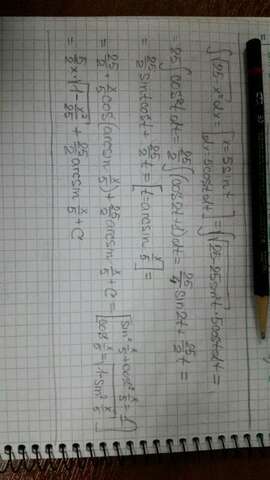 ∫√(25 - x²) dx = [x = 5 sin t, dx = 5cost dt] = ∫√(25 - 25sin²t) · 5cost dt =
= 25 ∫cos²t dt = 25/2 ∫(cos 2t + 1) dt = 25/4 sin 2t + 25/2 t =
= 25/2 sint cost + 25/2 t = [t = arcsin x/5] =
= 25/2 · x/5 cos(arcsin x/5) + 25/2 arcsin x/5 + C =
= 5/2 x √(1 - x²/25) + 25/2 arcsin x/5 + C